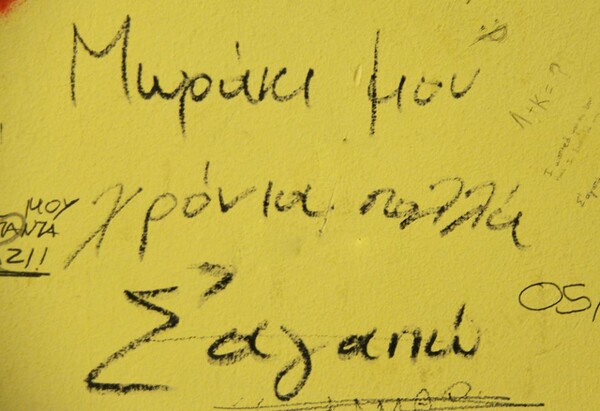 Μωράκι μου
χρόνια πολλά
Σ'αγαπώ
ΜΟΥ
ΠΑΝΤΑ
2/1
Λ-Κ=?
05,